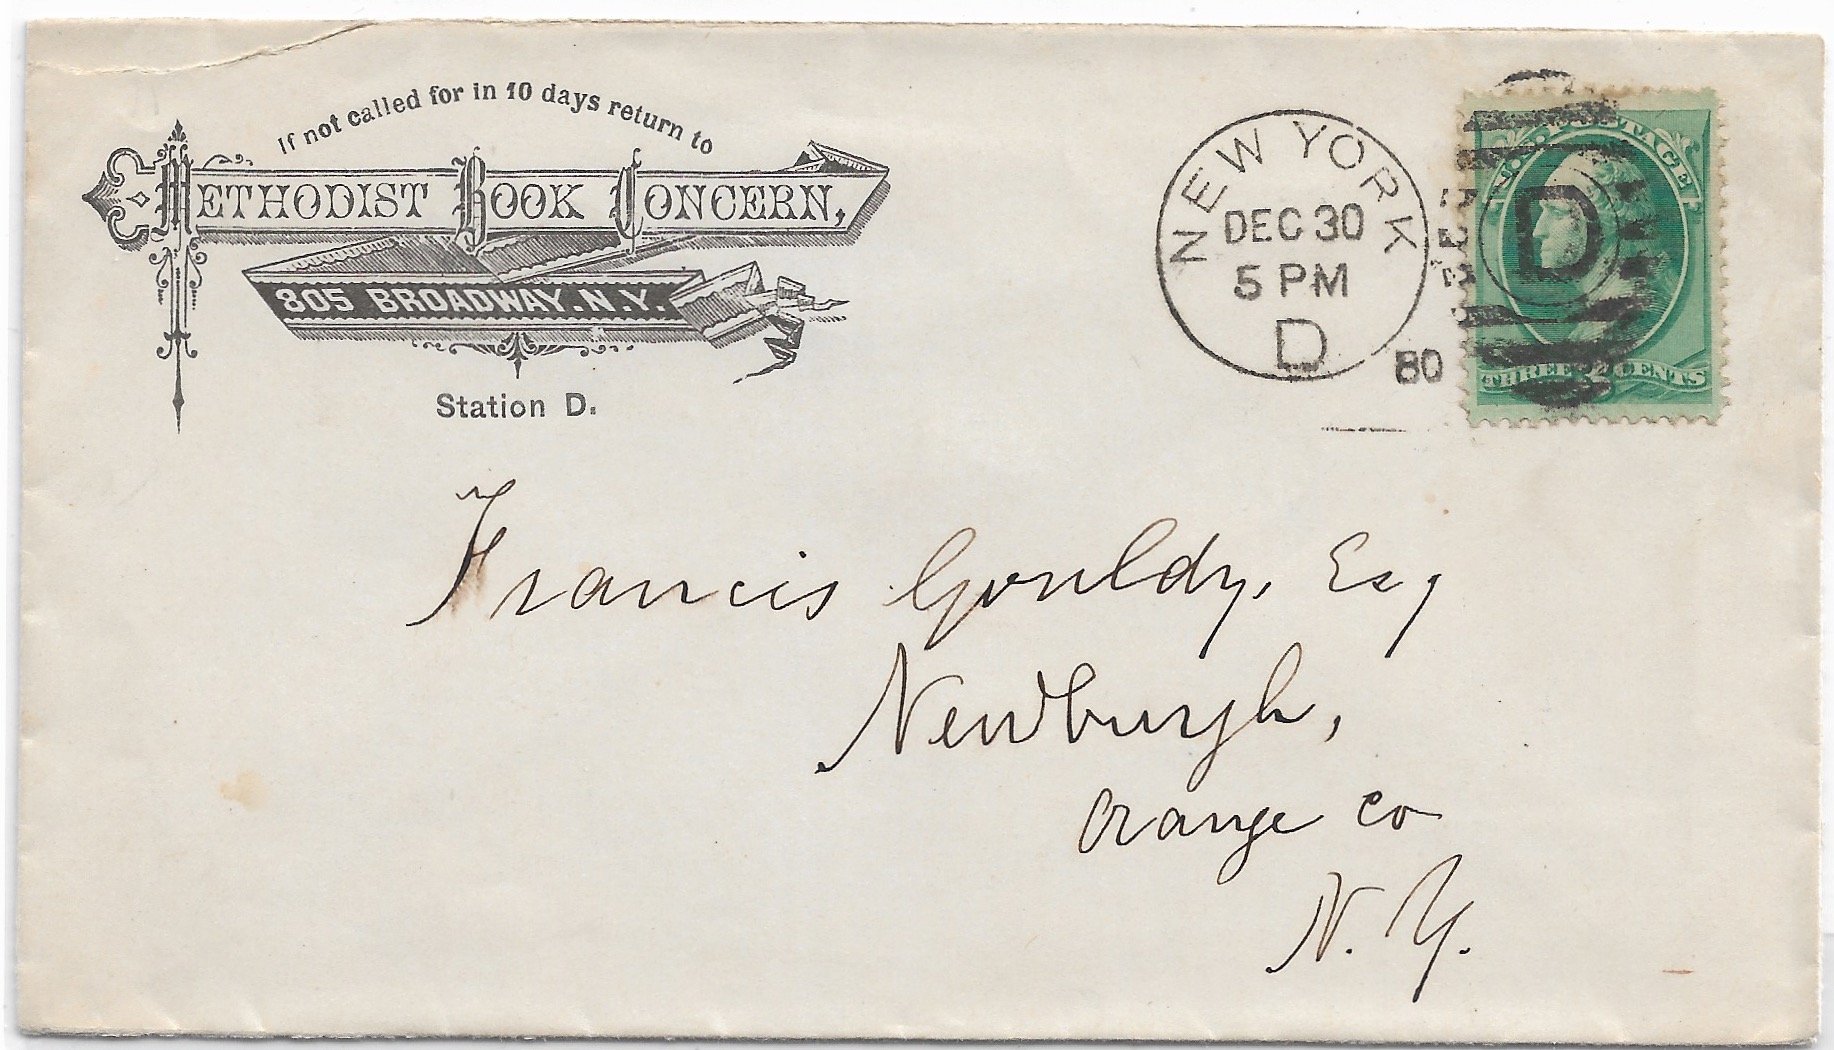 If not called for in 10 days return to
METHODIST BOOK CONCERN,
805 BROADWAY. N. Y.
Station D.
NEW YORK
DEC 30
5 PM
D
80
D
U.S. POSTAGE
THREE CENTS
Francis Gouldy, Esq
Newburgh,
Orange Co
N. Y.